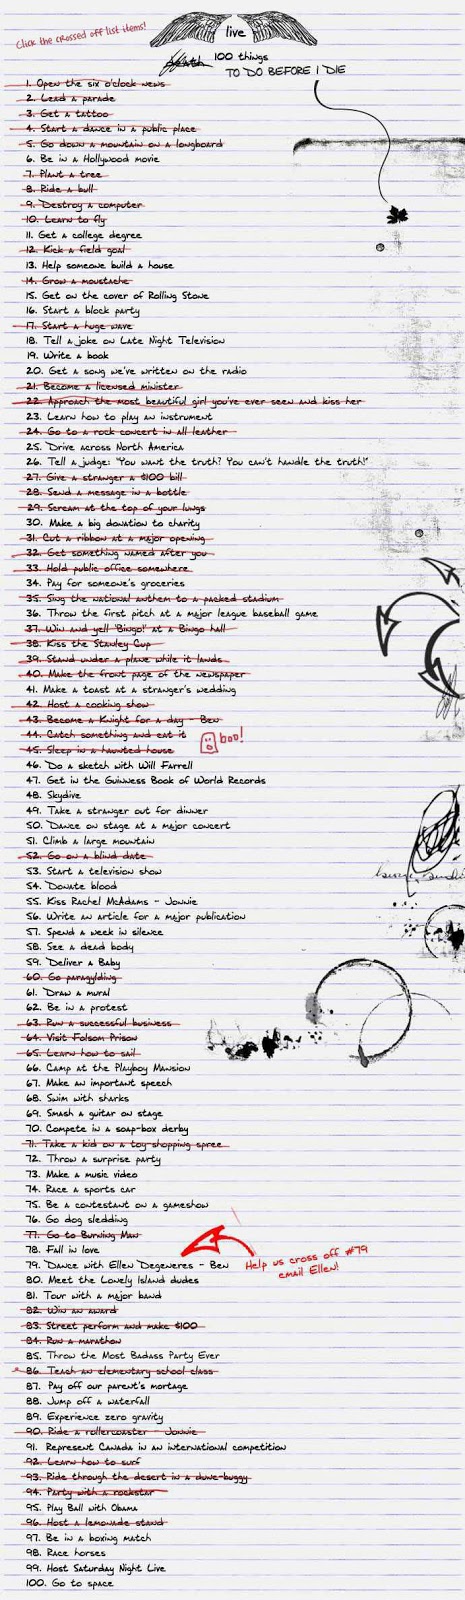 Click the crossed off list items!
live
death 100 things
TO DO BEFORE I DIE
1. Open the six o'clock news
2. Lead a parade
3. Get a tattoo
4. Start a dance in a public place
5. Go down a mountain on a longboard
6. Be in a Hollywood movie
7. Plant a tree
8. Ride a bull
9. Destroy a computer
10. Learn to fly
11. Get a college degree
12. Kick a field goal
13. Help someone build a house
14. Grow a moustache
15. Get on the cover of Rolling Stone
16. Start a block party
17. Start a huge wave
18. Tell a joke on Late Night Television
19. Write a book
20. Get a song we've written on the radio
21. Become a licensed minister
22. Approach the most beautiful girl you've ever seen and kiss her
23. Learn how to play an instrument
24. Go to a rock concert in all leather
25. Drive across North America
26. Tell a judge: "You want the truth? You can't handle the truth!"
27. Give a stranger a $100 bill
28. Send a message in a bottle
29. Scream at the top of your lungs
30. Make a big donation to charity
31. Cut a ribbon at a major opening
32. Get something named after you
33. Hold public office somewhere
34. Pay for someone's groceries
35. Sing the national anthem to a packed stadium
36. Throw the first pitch at a major league baseball game
37. Win and yell 'Bingo!' at a Bingo hall
38. Kiss the Stanley Cup
39. Stand under a plane while it lands
40. Make the front page of the newspaper
41. Make a toast at a stranger's wedding
42. Host a cooking show
43. Become a Knight for a day - Ben
44. Catch something and eat it
45. Sleep in a haunted house boo!
46. Do a sketch with Will Farrell
47. Get in the Guinness Book of World Records
48. Skydive
49. Take a stranger out for dinner
50. Dance on stage at a major concert
51. Climb a large mountain
52. Go on a blind date
53. Start a television show
54. Donate blood
55. Kiss Rachel McAdams - Jonnie
56. Write an article for a major publication
57. Spend a week in silence
58. See a dead body
59. Deliver a Baby
60. Go paragylding
61. Draw a mural
62. Be in a protest
63. Run a successful business
64. Visit Folsom Prison
65. Learn how to sail
66. Camp at the Playboy Mansion
67. Make an important speech
68. Swim with sharks
69. Smash a guitar on stage
70. Compete in a soap-box derby
71. Take a kid on a toy shopping spree
72. Throw a surprise party
73. Make a music video
74. Race a sports car
75. Be a contestant on a gameshow
76. Go dog sledding
77. Go to Burning Man
78. Fall in love
79. Dance with Ellen Degeneres - Ben
Help us cross off #79
email Ellen!
80. Meet the Lonely Island dudes
81. Tour with a major band
82. Win an award
83. Street perform and make $100
84. Run a marathon
85. Throw the Most Badass Party Ever
* 86. Teach an elementary school class
87. Pay off our parent's mortage
88. Jump off a waterfall
89. Experience zero gravity
90. Ride a rollercoaster - Jonnie
91. Represent Canada in an international competition
92. Learn how to surf
93. Ride through the desert in a dune-buggy
94. Party with a rockstar
95. Play Ball with Obama
96. Host a lemonade stand
97. Be in a boxing match
98. Race horses
99. Host Saturday Night Live
100. Go to space